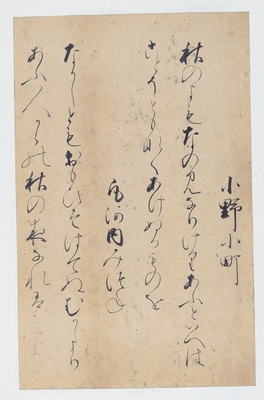 小野小町
秋のよもなのみなりけりあふといへは
ことそともなくあけぬるものを
凡河内みつね
なかしともおもひそはてぬむかしより
あふ人からの秋の夜なれは